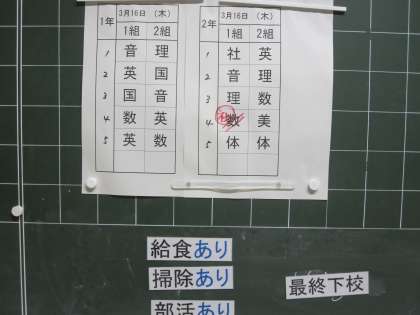 1年 3月16日 (木)
1組 2組
1 音 理
2 英 国
3 国 音
4 数 英
5 英 数
2年 3月16日 (木)
1組 2組
1 社 英
2 音 理
3 理 数
4 数 美
5 体 体
給食あり
掃除あり
部活あり
最終下校